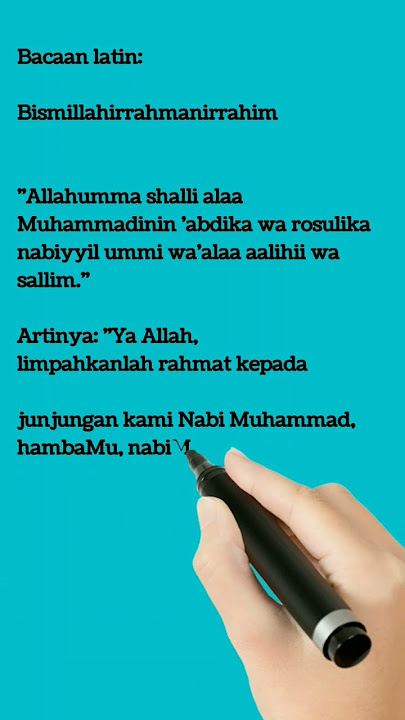 Bacaan latin:
Bismillahirrahmanirrahim
"Allahumma shalli alaa
Muhammadinin 'abdika wa rosulika
nabiyyil ummi wa'alaa aalihii wa
sallim."
Artinya: "Ya Allah,
limpahkanlah rahmat kepada
junjungan kami Nabi Muhammad,
hambaMu, nabiM